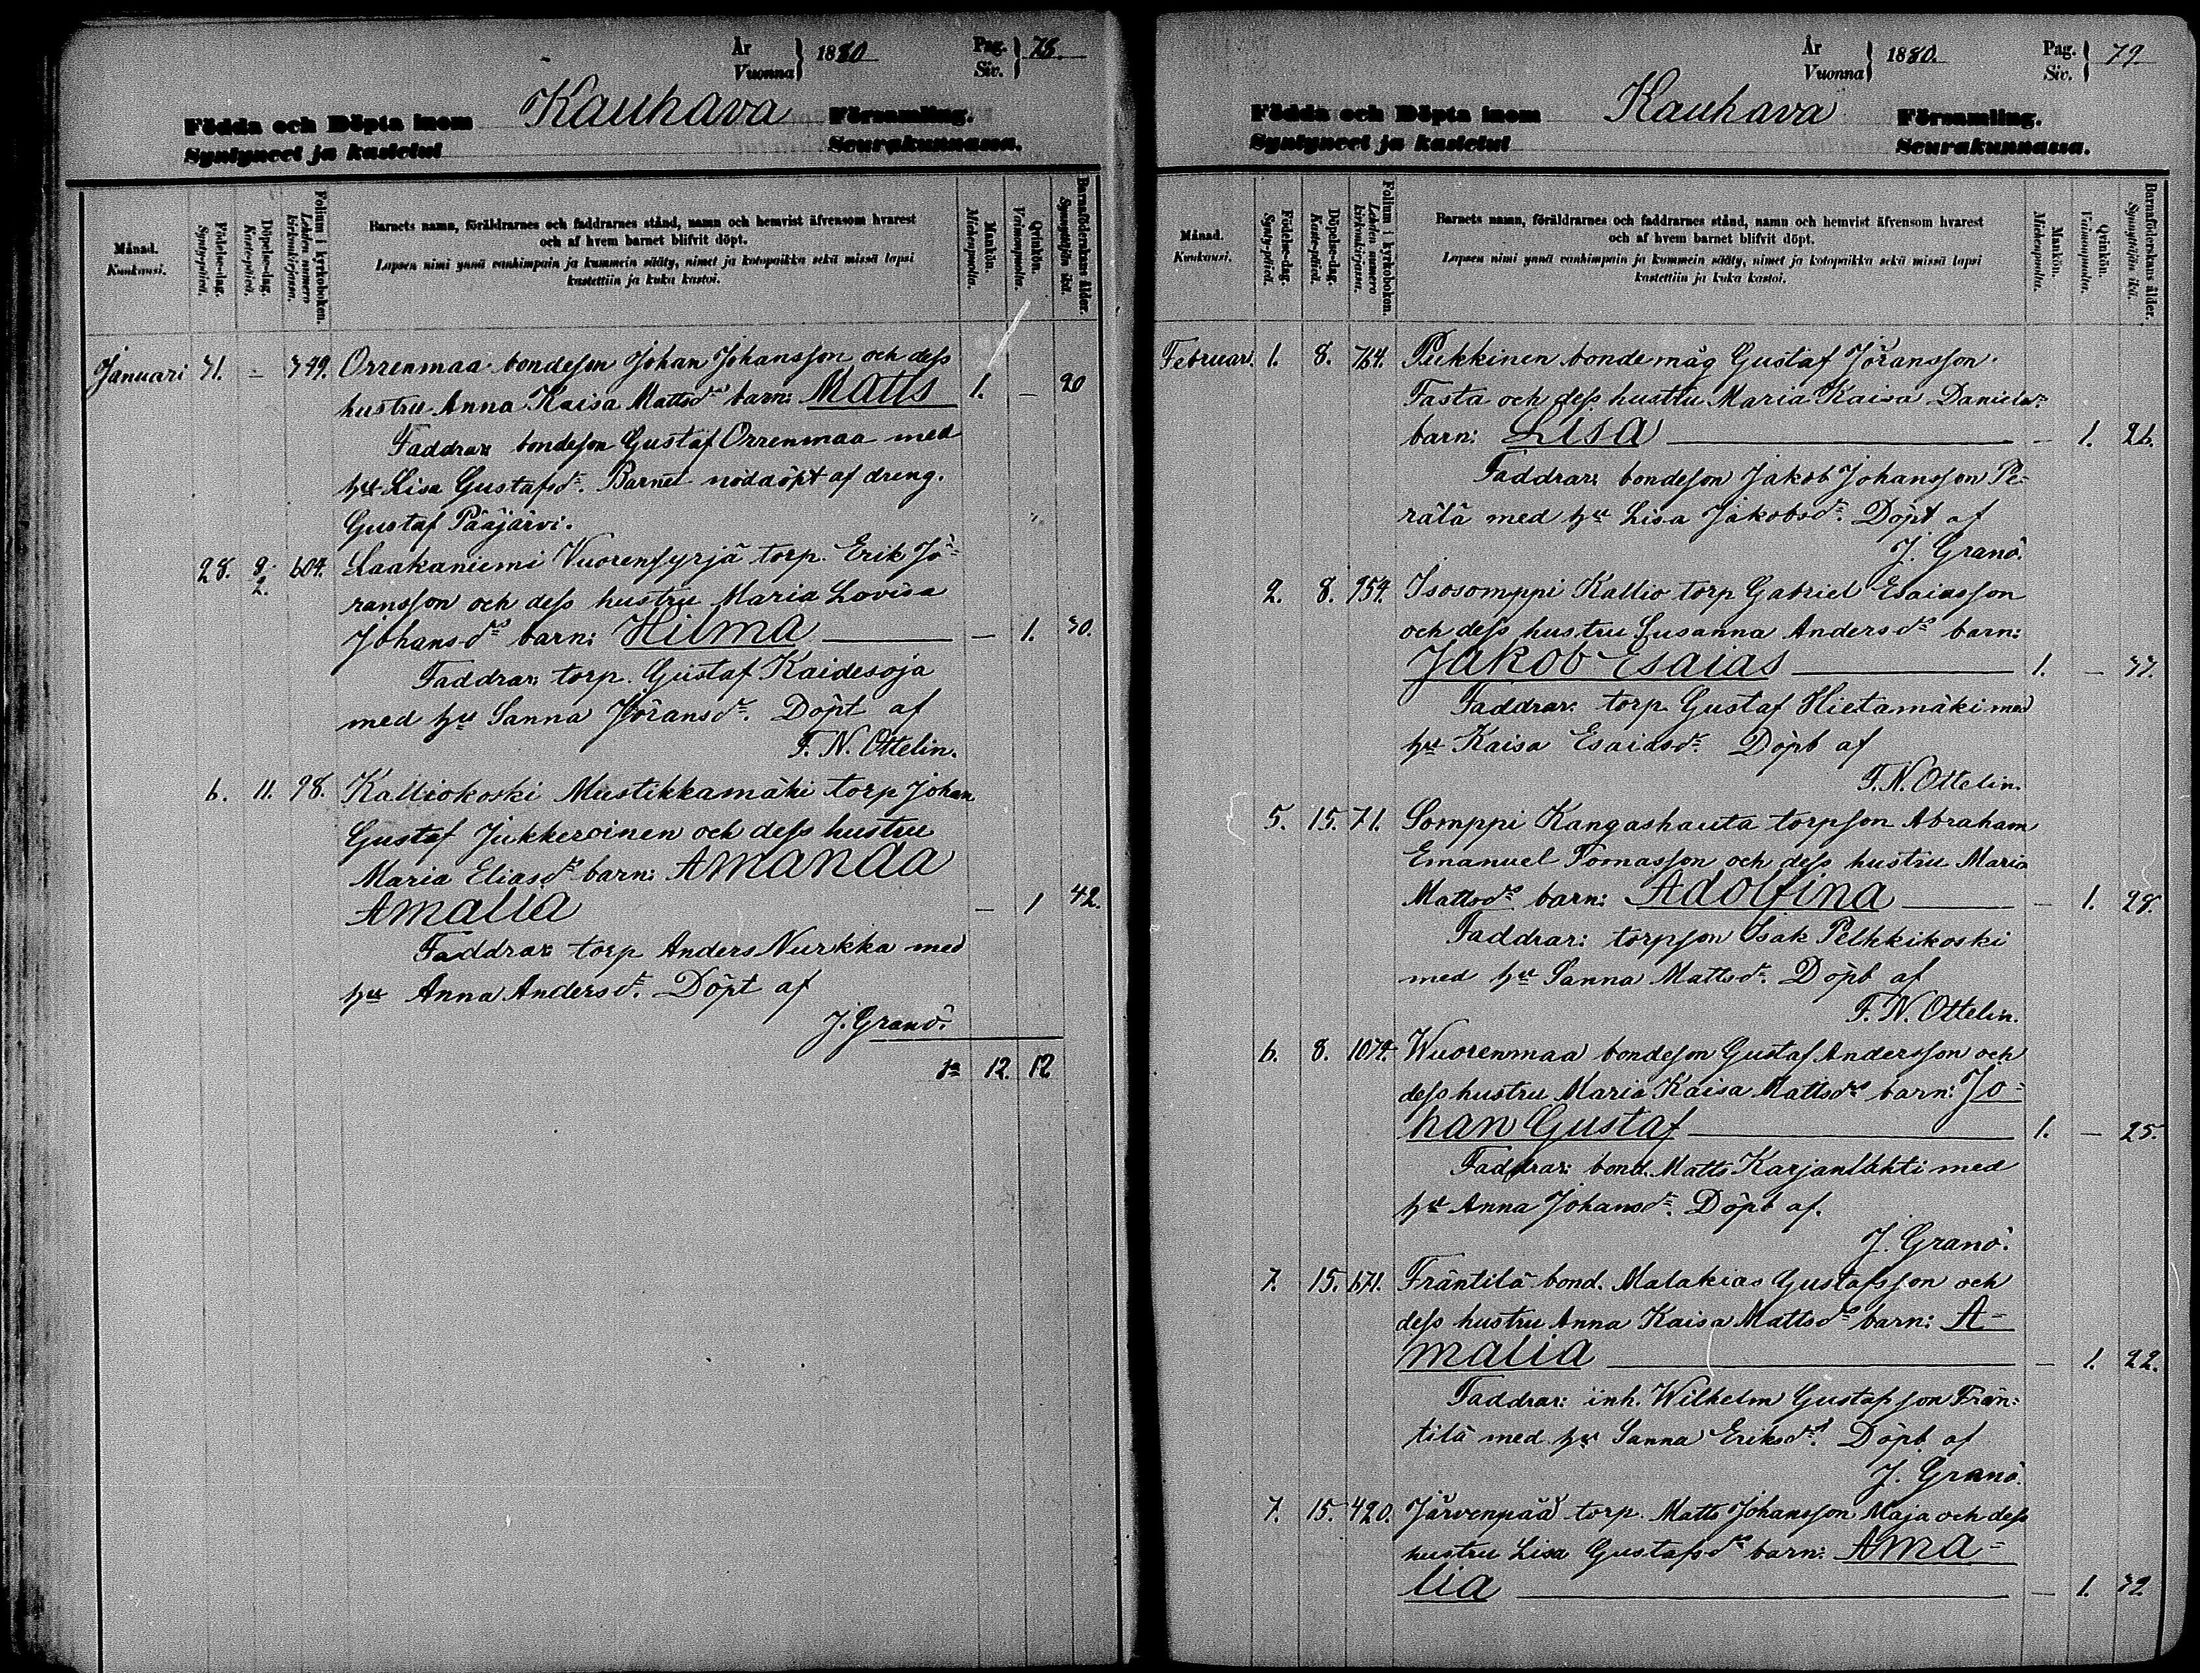 År
Vuonna } 1880 Pag.
Siv. } 78.
Födda och Döpta inom Kauhava Församling.
Syntyneet ja kastetut Seurakunnassa.
Månad.
Kuukausi.
Födelse-dag.
Synty-päivä.
Döpelse-dag.
Kaste-päivä.
Folium i kyrkoboken.
Lehden numero kirkonkirjassa.
Barnets namn, föräldrarnes och faddrarnes stånd, namn och hemvist äfvensom hvarest
och af hvem barnet blifvit döpt.
Lapsen nimi ynnä vanhimpain ja kummein sääty, nimet ja kotopaikka sekä missä lapsi
kastettiin ja kuka kastoi.
Mankön.
Miehenpuolia.
Qvinkön.
Vaimonpuolia.
Barnaföderskans ålder.
Synnyttäjän ikä.
Januari 31. – 349. Orrenmaa bondeson Johan Johansson och dess
hustru Anna Kaisa Mattsdr barn: Matts 1. – 20
Faddrar: bondeson Gustaf Orrenmaa med
hu Lisa Gustafsdr. Barnet nöddöpt af dreng.
Gustaf Pääjärvi.
28. 8/2. 604. Laakaniemi Vuorensyrjä torp. Erik Jö-
ransson och dess hustru Maria Lovisa
Johansdr barn: Hilma – 1. 30.
Faddrar: torp. Gustaf Kaidesoja
med hu Sanna Jöransdr. Döpt af
F. N. Ottelin.
6. 11. 98. Kalliokoski Mustikkamäki torp Johan
Gustaf Jukkeroinen och dess hustru
Maria Eliasdr barn: Amanda
Amalia – 1 42.
Faddrar: torp Anders Nurkka med
hu Anna Andersdr. Döpt af
J. Granö.
Sa 12. 12
År
Vuonna } 1880. Pag.
Siv. } 79.
Födda och Döpta inom Kauhava Församling.
Syntyneet ja kastetut Seurakunnassa.
Månad.
Kuukausi.
Födelse-dag.
Synty-päivä.
Döpelse-dag.
Kaste-päivä.
Folium i kyrkoboken.
Lehden numero kirkonkirjassa.
Barnets namn, föräldrarnes och faddrarnes stånd, namn och hemvist äfvensom hvarest
och af hvem barnet blifvit döpt.
Lapsen nimi ynnä vanhimpain ja kummein sääty, nimet ja kotopaikka sekä missä lapsi
kastettiin ja kuka kastoi.
Mankön.
Miehenpuolia.
Qvinkön.
Vaimonpuolia.
Barnaföderskans ålder.
Synnyttäjän ikä.
Februari. 1. 8. 764. Pukkinen bondemåg Gustaf Jöransson
Fasta och dess hustru Maria Kaisa Danielsdr
barn: Lisa – 1. 26.
Faddrar: bondeson Jakob Johansson Pe-
rälä med hu Lisa Jakobsdr. Döpt af
J. Granö.
2. 8. 954. Isosomppi Kallio torp Gabriel Esaiasson
och dess hustru Susanna Andersdr barn:
Jakob Esaias 1. – 37.
Faddrar: torp. Gustaf Hietamäki med
hu Kaisa Esaiasdr. Döpt af
F. N. Ottelin.
5. 15. 71. Somppi Kangashauta torpson Abraham
Emanuel Tomasson och dess hustru Maria
Mattsdr barn: Adolfina – 1. 28.
Faddrar: torpson Isak Pelkkikoski
med hu Sanna Mattsdr. Döpt af
F. N. Ottelin.
6. 8. 1074. Wuorenmaa bondeson Gustaf Andersson och
dess hustru Maria Kaisa Mattsdr barn: Jo-
han Gustaf 1. – 25.
Faddrar: bond. Matts Karjanlahti med
hu Anna Johansdr. Döpt af.
J. Granö.
7. 15. 671. Fräntilä bond. Malakias Gustafsson och
dess hustru Anna Kaisa Mattsdr barn: A-
malia – 1. 22.
Faddrar: inh. Wilhelm Gustafsson Frän-
tilä med hu Sanna Eriksdr. Döpt af
J. Granö.
7. 15. 420. Järvenpää torp. Matts Johansson Maja och dess
hustru Lisa Gustafsdr barn: Ama-
lia – 1. 32.